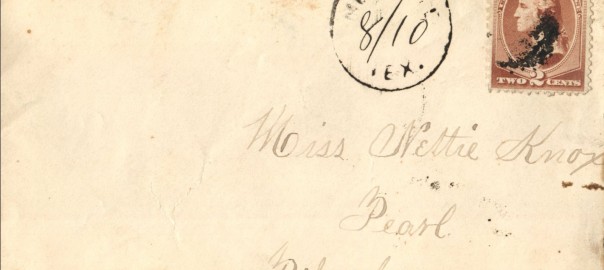 8/10
EX.
TWO 2 CENTS
Miss Nettie Knox
Pearl